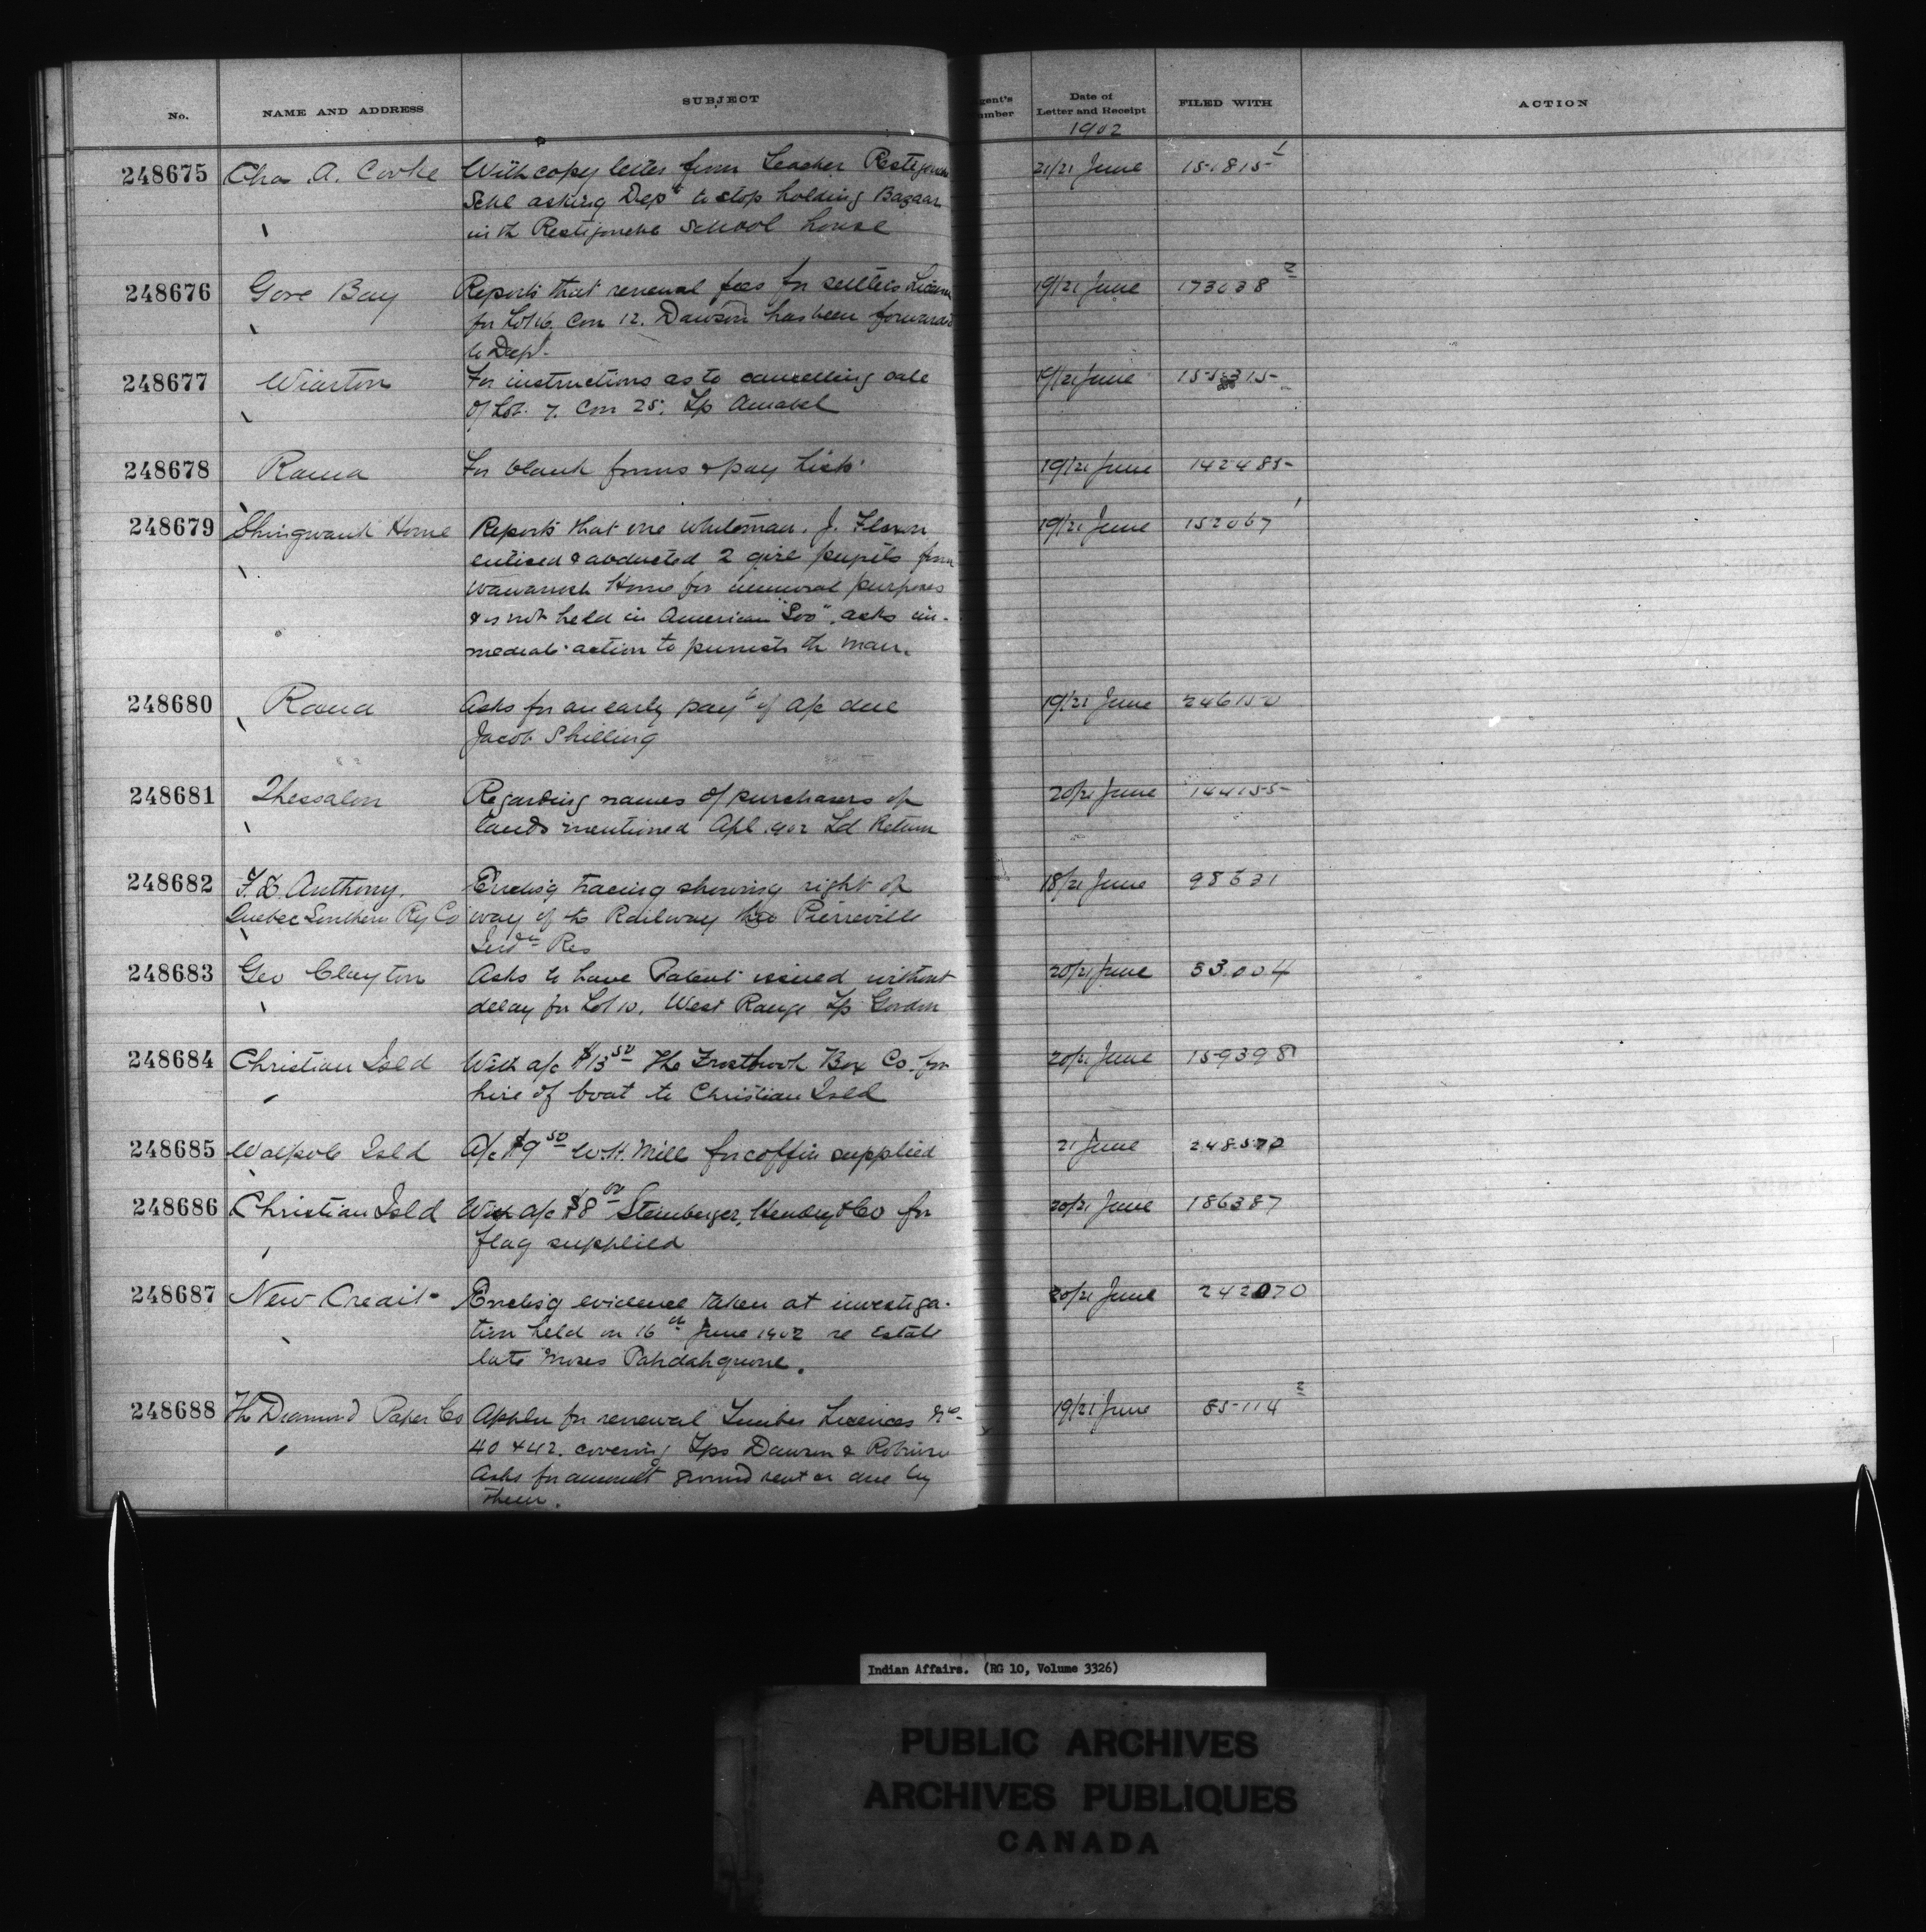 No. NAME AND ADDRESS SUBJECT gent's umber Date of Letter and Receipt FILED WITH ACTION
1902
248675 Chas A. Cooke With copy letter from Teacher Restigouche 21/21 June 151815 1
Schl asking Dept to stop holding Bazaar
in th Restigouche School house
248676 Gore Bay Reports that renewal fees for settlers License 19/21 June 173038 2
for Lot 16, Con 12. Dawson has been forwarded
to Dept.
248677 Wiarton For instructions as to cancelling sale 19/21 June 155315
of Lot 7. Con 25. Tp Amabel
248678 Rama For blank forms & pay lists 19/21 June 142485
248679 Shingwauk Home Reports that one whiteman. J. 19/21 June 152067 1
enticed & abducted 2 girl pupils from
Wawanosh Home for immoral purposes
& is not held in American "Soo". asks im-
mediate action to punish th man.
248680 Rama Asks for an early payt of a/c due 19/21 June 246150
Jacob Shilling
248681 Thessalon Regarding names of purchasers of 20/21 June 144155
lands mentioned Apl 1902 Ld Return
248682 F. D. Anthony. Enclos'g tracing showing right of 18/21 June 98631
Quebec Southern Ry Co way of th Railway thro Pierreville
Indn Res
248683 Geo Clayton Asks to have Patent issued without 20/21 June 53.004
delay for Lot 10, West Range Tp Gordon
248684 Christian Isld With a/c $13 50 The Firstbrook Box Co. for 20/21 June 159398
hire of boat to Christian Isld
248685 Walpole Isld A/c $9 50 W.H. Mill for coffin supplied 21 June 248570
248686 Christian Isld With a/c $8 00 Steinberger, Hendry & Co for 20/21 June 186387
flag supplied
248687 New Credit Enclos'g evidence taken at investiga- 20/21 June 242070
tion held on 16th June 1902 re Estate
late Moses Pahdahquong.
248688 Th Diamond Paper Co Appln for renewal Timber Licences Nos 19/21 June 85114 2
40 & 42. covering Tps Dawson & Robinson
Asks for amount ground rent as due by
them.
Indian Affairs. (RG 10, Volume 3326)
PUBLIC ARCHIVES
ARCHIVES PUBLIQUES
CANADA